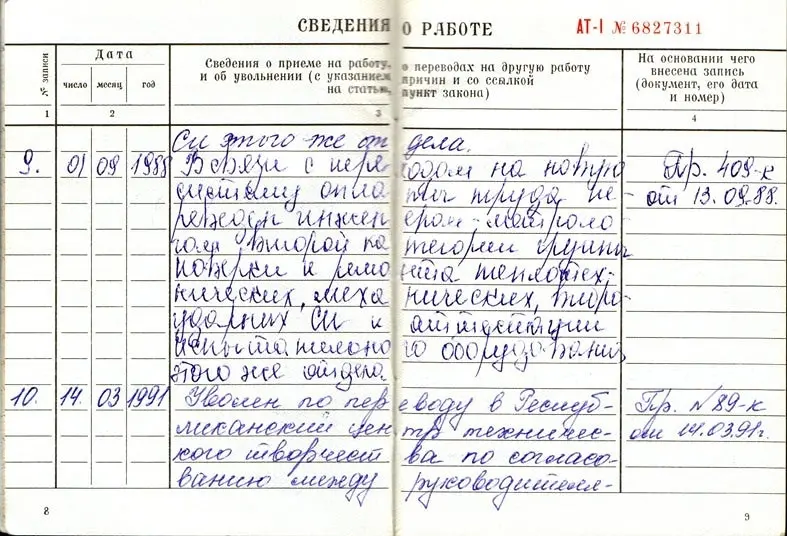 СВЕДЕНИЯ О РАБОТЕ
АТ-I № 6827311
№ записи
Дата
число месяц год
Сведения о приеме на работу, о переводах на другую работу
и об увольнении (с указанием причин и со ссылкой
на статью, пункт закона)
На основании чего
внесена запись
(документ, его дата
и номер)
1 2 3 4
Си этого же отдела.
9. 01 09 1988 В связи с пере ходом на новую Пр. 409-к
систему опла ты труда пе- от 13.09.88.
реведен инжен ером-метроло
гом второй ка тегории группы
поверки и ремо нта теплотех-
нических, меха нических, виро-
ударных СИ и аттестации
испытательно го оборудования
этого же отдела.
10. 14. 03 1991 Уволен по пер еводу в Респуб- Пр. №89-к
ликанский цен тр техничес- от 14.03.91г.
кого творчест ва по согласо-
ванию между руководителя-
8
9